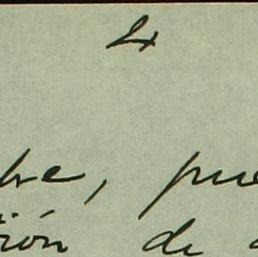 4
bre, pue
ción de